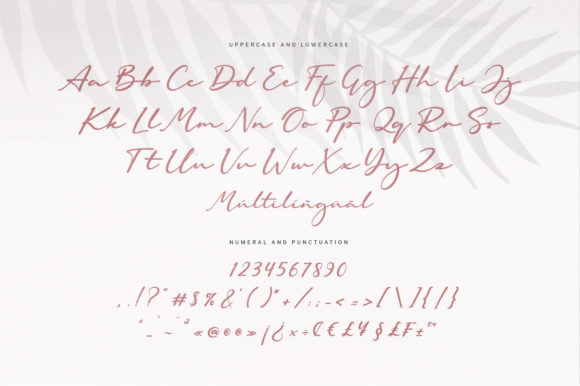 UPPERCASE AND LOWERCASE
Aa Bb Cc Dd Ee Ff Gg Hh Ii Jj
Kk Ll Mm Nn Oo Pp Qq Rr Ss
Tt Uu Vv Ww Xx Yy Zz
Múltiliñguãl
NUMERAL AND PUNCTUATION
1234567890
. , ! ? " # $ % & ' ( ) * + / : ; - < = > [ \ ] { | }
^ _ ` ~ ¨ ª « @ © ® » ¡ ¿ × ÷ ₡ € £ ¥ § £ ₣ ± ™